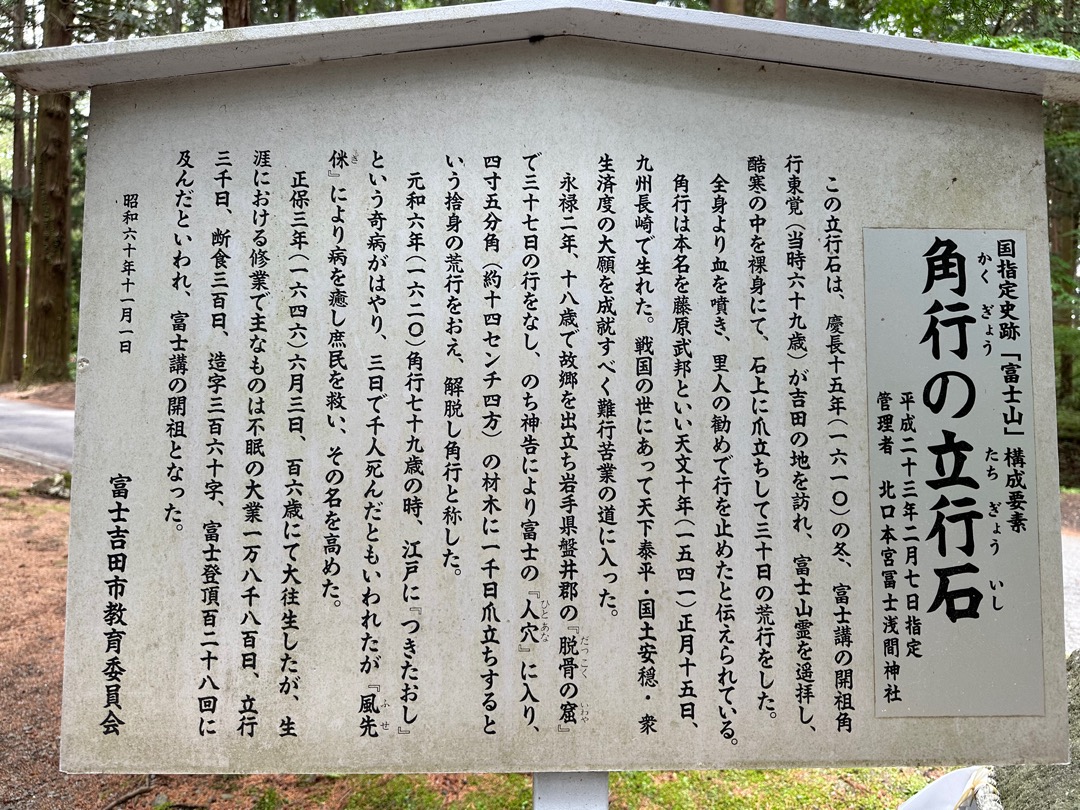 国指定史跡「富士山」構成要素
かく ぎょう たち ぎょう いし
角行の立行石
平成二十三年二月七日指定
管理者 北口本宮冨士浅間神社
この立行石は、慶長十五年(一六一〇)の冬、富士講の開祖角
行東覚(当時六十九歳)が吉田の地を訪れ、富士山霊を遥拝し、
酷寒の中を裸身にて、石上に爪立ちして三十日の荒行をした。
全身より血を噴き、里人の勧めで行を止めたと伝えられている。
角行は本名を藤原武邦といい天文十年(一五四一)正月十五日、
九州長崎で生れた。戦国の世にあって天下泰平・国土安穏・衆
生済度の大願を成就すべく難行苦業の道に入った。
永禄二年、十八歳で故郷を出立ち岩手県盤井郡の『脱骨の窟』
だつこく いわや
で三十七日の行をなし、のち神告により富士の『人穴』に入り、
ひとあな
四寸五分角(約十四センチ四方)の材木に一千日爪立ちすると
いう捨身の荒行をおえ、解脱し角行と称した。
元和六年(一六二〇)角行七十九歳の時、江戸に『つきたおし』
という奇病がはやり、三日で千人死んだともいわれたが『風先
ふせ
侎』により病を癒し庶民を救い、その名を高めた。
ぎ
正保三年(一六四六)六月三日、百六歳にて大往生したが、生
涯における修業で主なものは不眠の大業一万八千八百日、立行
三千日、断食三百日、造字三百六十字、富士登頂百二十八回に
及んだといわれ、富士講の開祖となった。
昭和六十年十一月一日
富士吉田市教育委員会